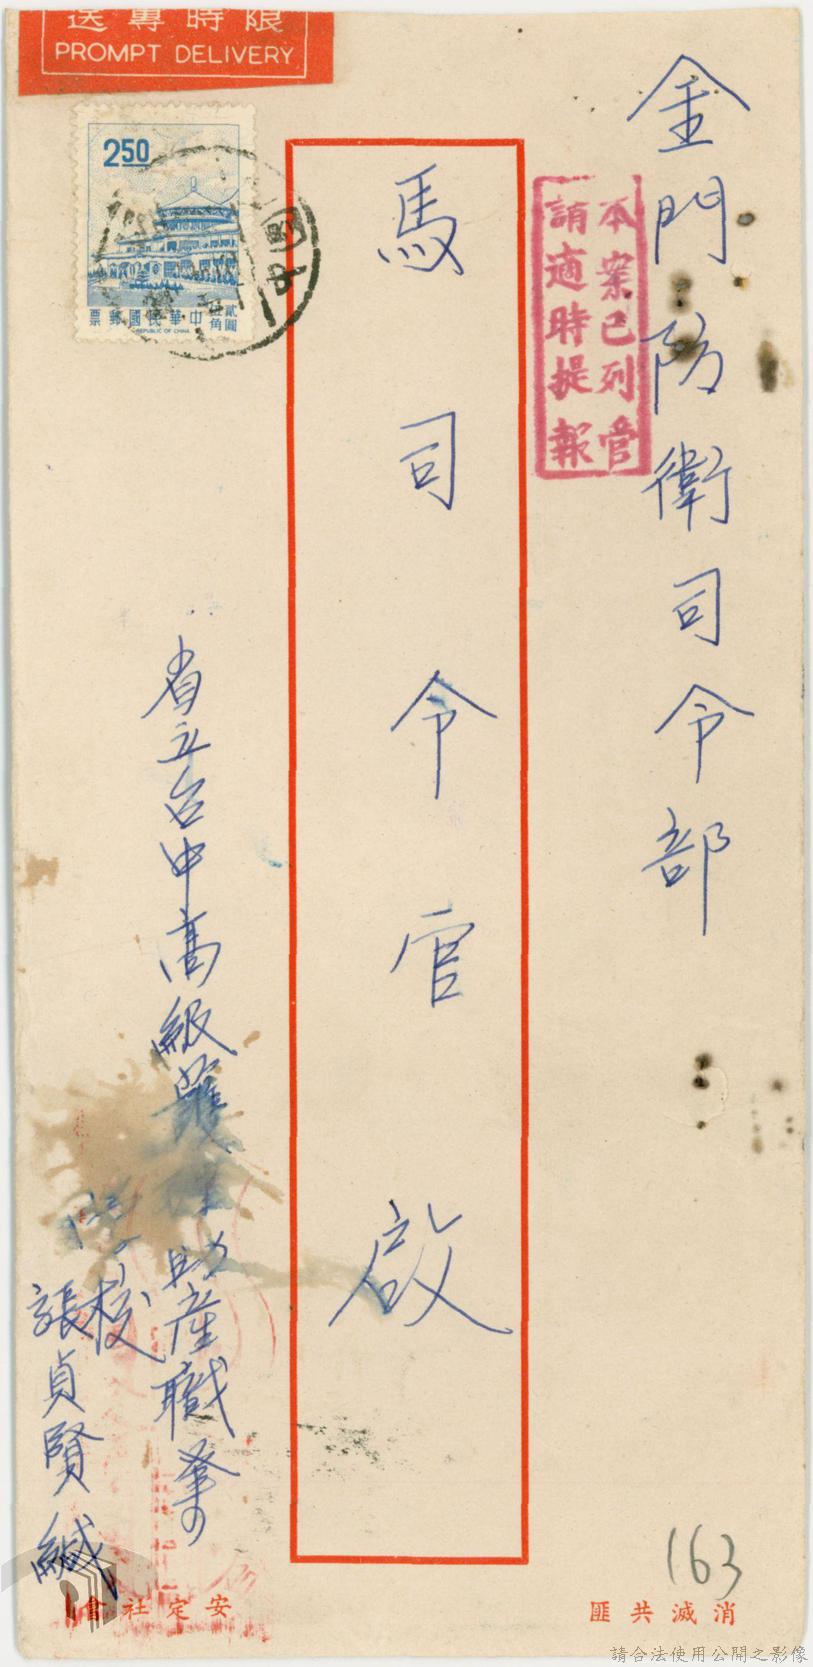 限時專送
PROMPT DELIVERY
2.50
貳圓
伍角
中華民國郵票
REPUBLIC OF CHINA
金門防衛司令部
本案已列管
請適時提報
馬司令官 啟
省立台中高級護 助產職業
學校
張貞賢 緘
163
消滅共匪
安定社會
請合法使用公開之影像